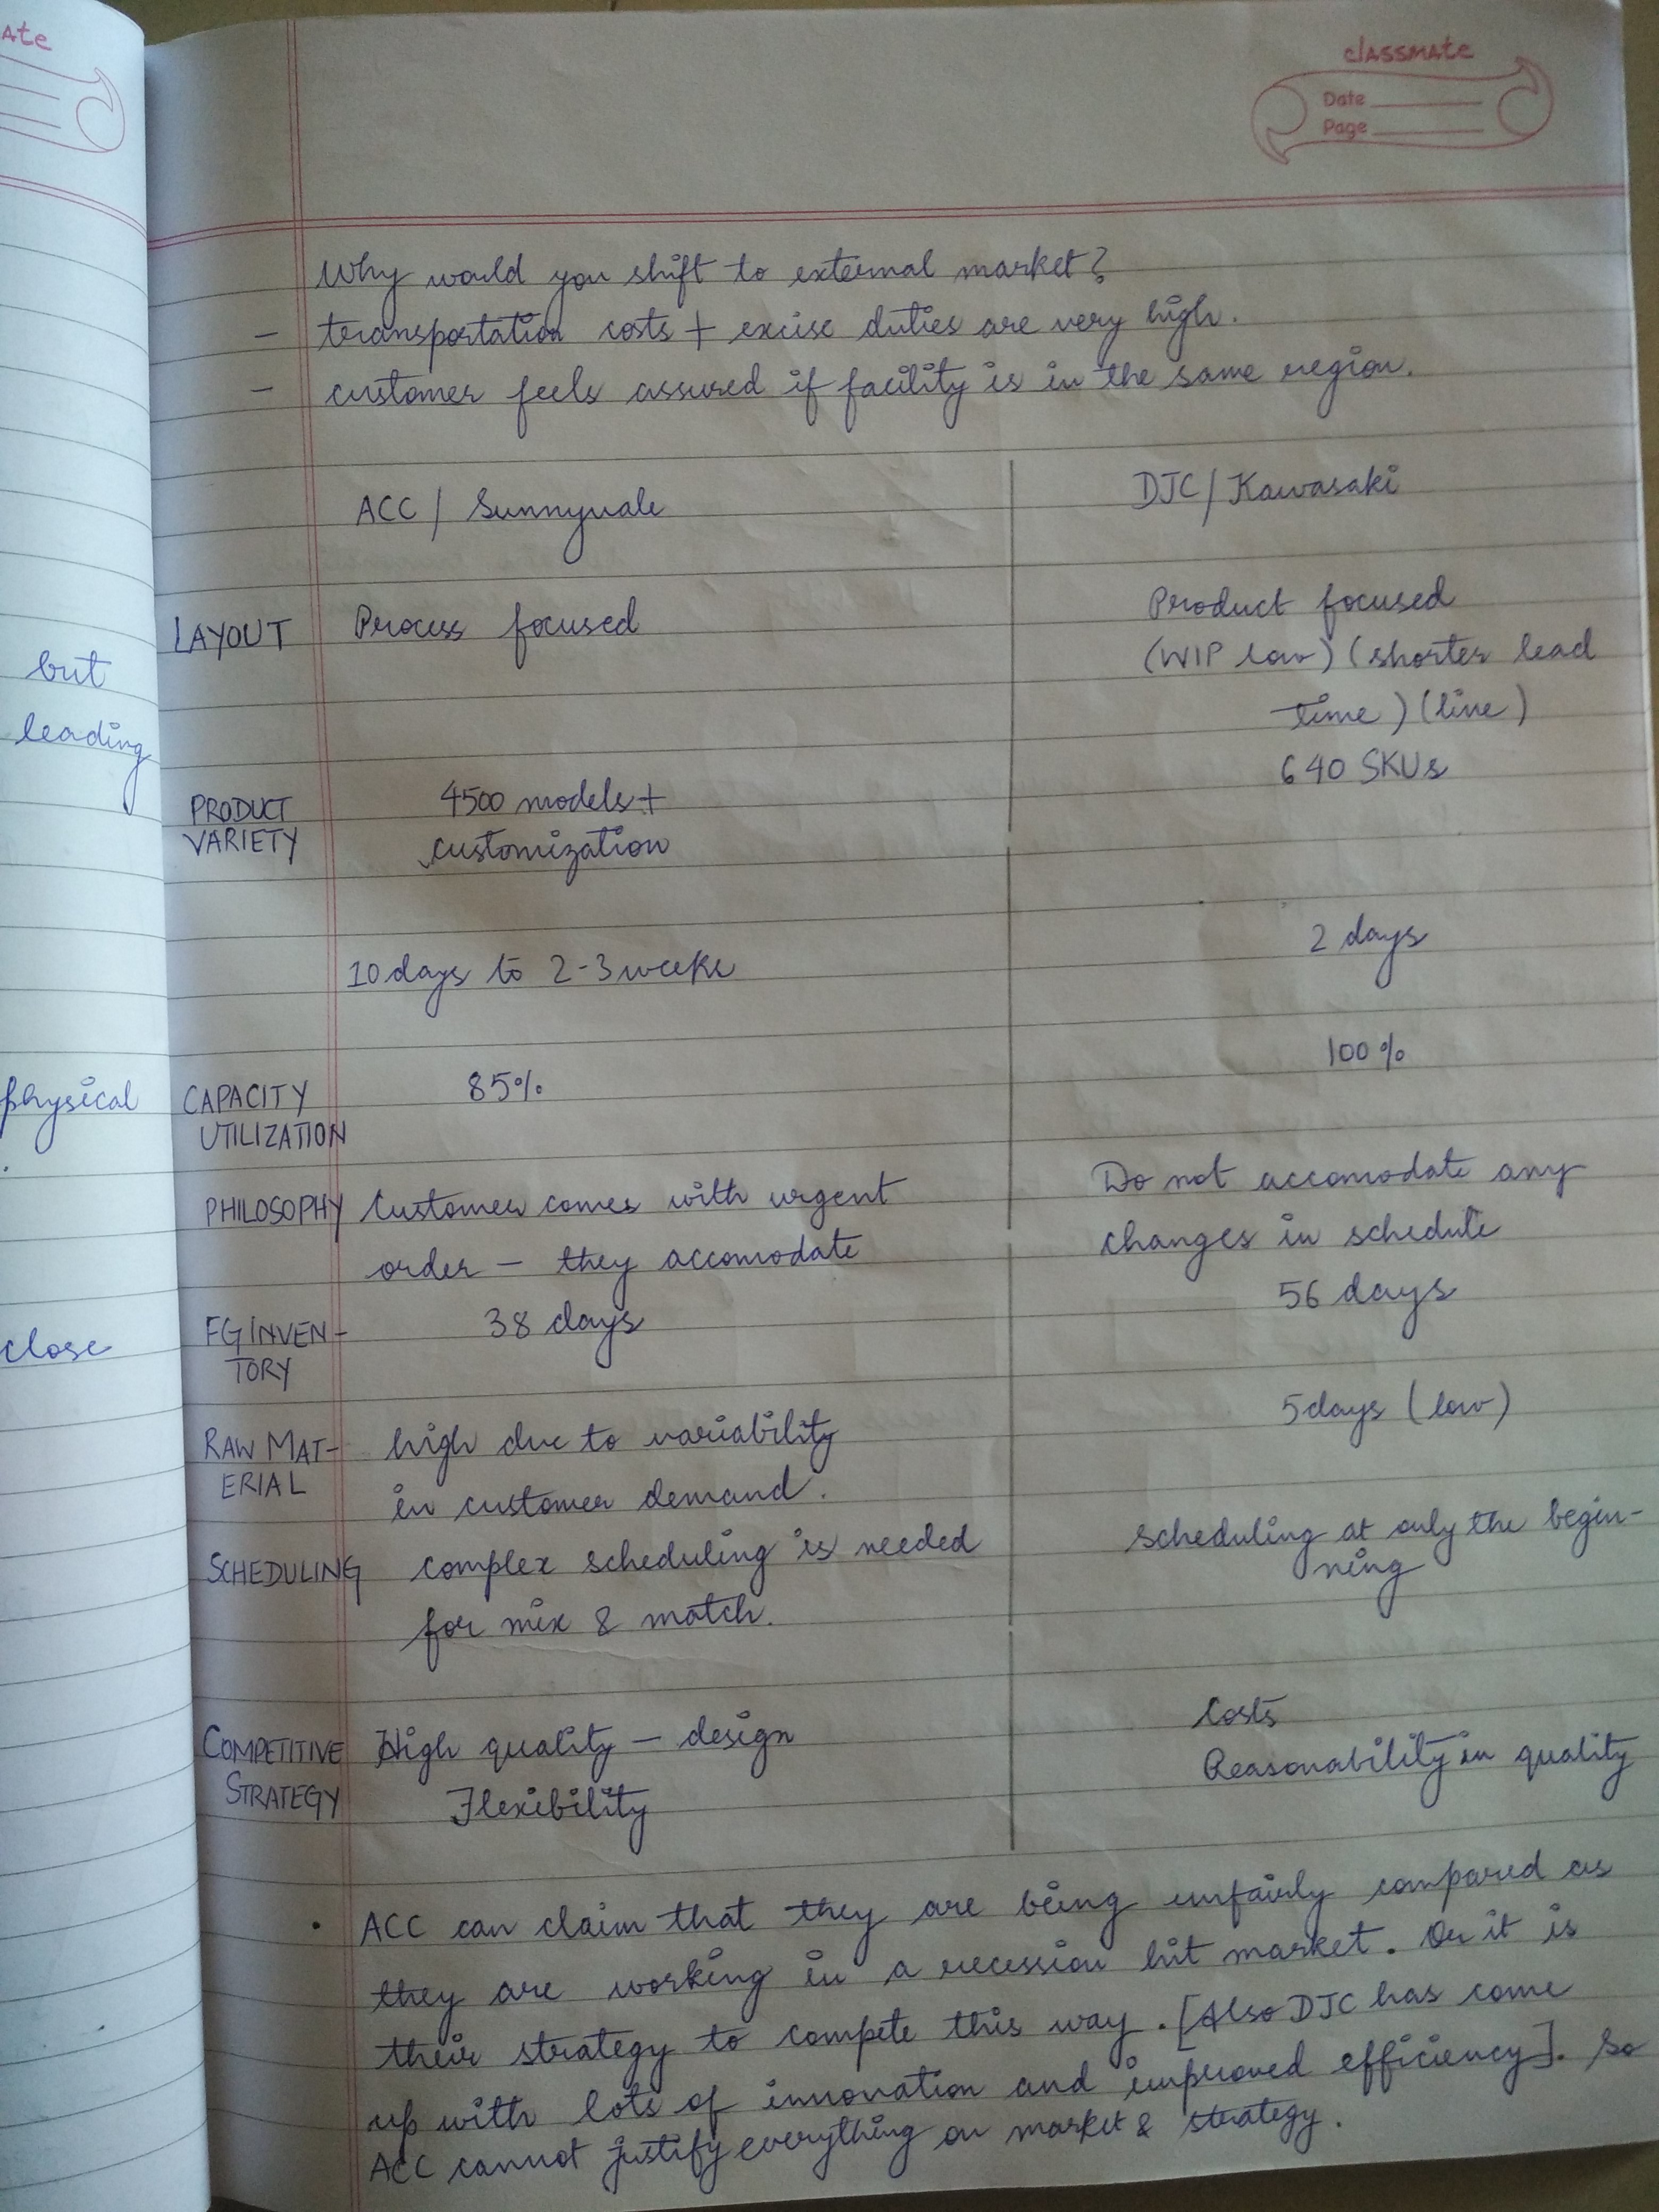 ate
classmate
Date
Page
Why would you shift to external market?
- transportation costs + excise duties are very high.
- customer feels assured if facility is in the same region.
ACC / Sunnyvale DJC / Kawasaki
LAYOUT Process focused Product focused
(WIP low) (shorter lead
time) (line)
but
leading
PRODUCT VARIETY 4500 models + customization 640 SKUs
10 days to 2-3 weeks 2 days
physical
CAPACITY UTILIZATION 85% 100%
PHILOSOPHY Customer comes with urgent Do not accomodate any
order - they accomodate changes in schedule
close
FG INVEN-TORY 38 days 56 days
RAW MAT-ERIAL high due to variability 5 days (low)
in customer demand.
SCHEDULING complex scheduling is needed scheduling at only the begin-
for mix & match. ning
COMPETITIVE STRATEGY High quality - design Costs
Flexibility Reasonability in quality
• ACC can claim that they are being unfairly compared as
they are working in a recession hit market. Or it is
their strategy to compete this way. [Also DJC has come
up with lots of innovation and improved efficiency]. So
ACC cannot justify everything on market & strategy.